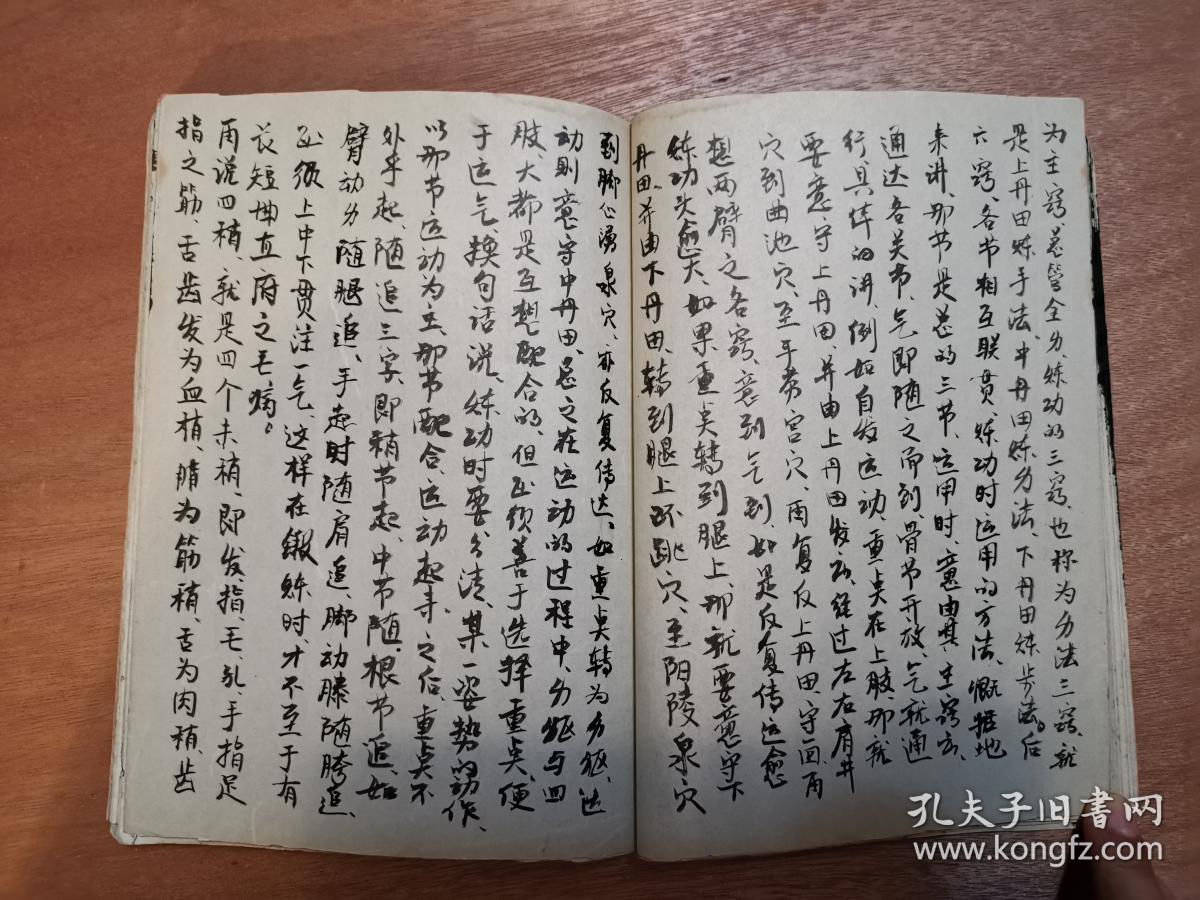 为主窍，总管全身练功的三窍，也称为身法三窍，就
是上丹田炼手法，中丹田炼身法，下丹田炼步法。后
六窍、各节相互联贯，炼功时运用的方法，概括地
来讲，那节是总的三节，运用时，意由其主窍去，
通达各关节，气即随之而到，骨节开放，气就通
行，具体的讲，例如自发运动，重点在上肢那就
要意守上丹田，并由上丹田发去，经过左右肩井
穴到曲池穴，至手劳宫穴，再复反上丹田，守回，再
想两臂之各窍，意到气到，如是反复传运愈
练功夫愈大，如果重点转到腿上，那就要意守下
丹田，并由下丹田，转到腿上环跳穴，至阳陵泉穴
到脚心涌泉穴，亦反复传达，如重点转为身躯，运
动则意守中丹田，总之在运动的过程中，身躯与四
肢，大都是互想配合的，但必须善于选择重点，便
于运气，换句话说，练功时要分清，某一姿势的动作，
以那节运动为主，那节配合，运动起手之后，重点不
外乎起，随追三字，即稍节起，中节随，根节追，如
臂动身随腿追，手起时随肩追，脚动膝随胯追，
必须上中下贯注一气，这样在锻练时，才不至于有
长短曲直府之毛病。
再说四稍，就是四个末稍，即发，指，毛，孔，手指足
指之筋，舌齿发为血稍，腊为筋稍，舌为肉稍，齿
孔夫子旧书网
www.kongfz.com